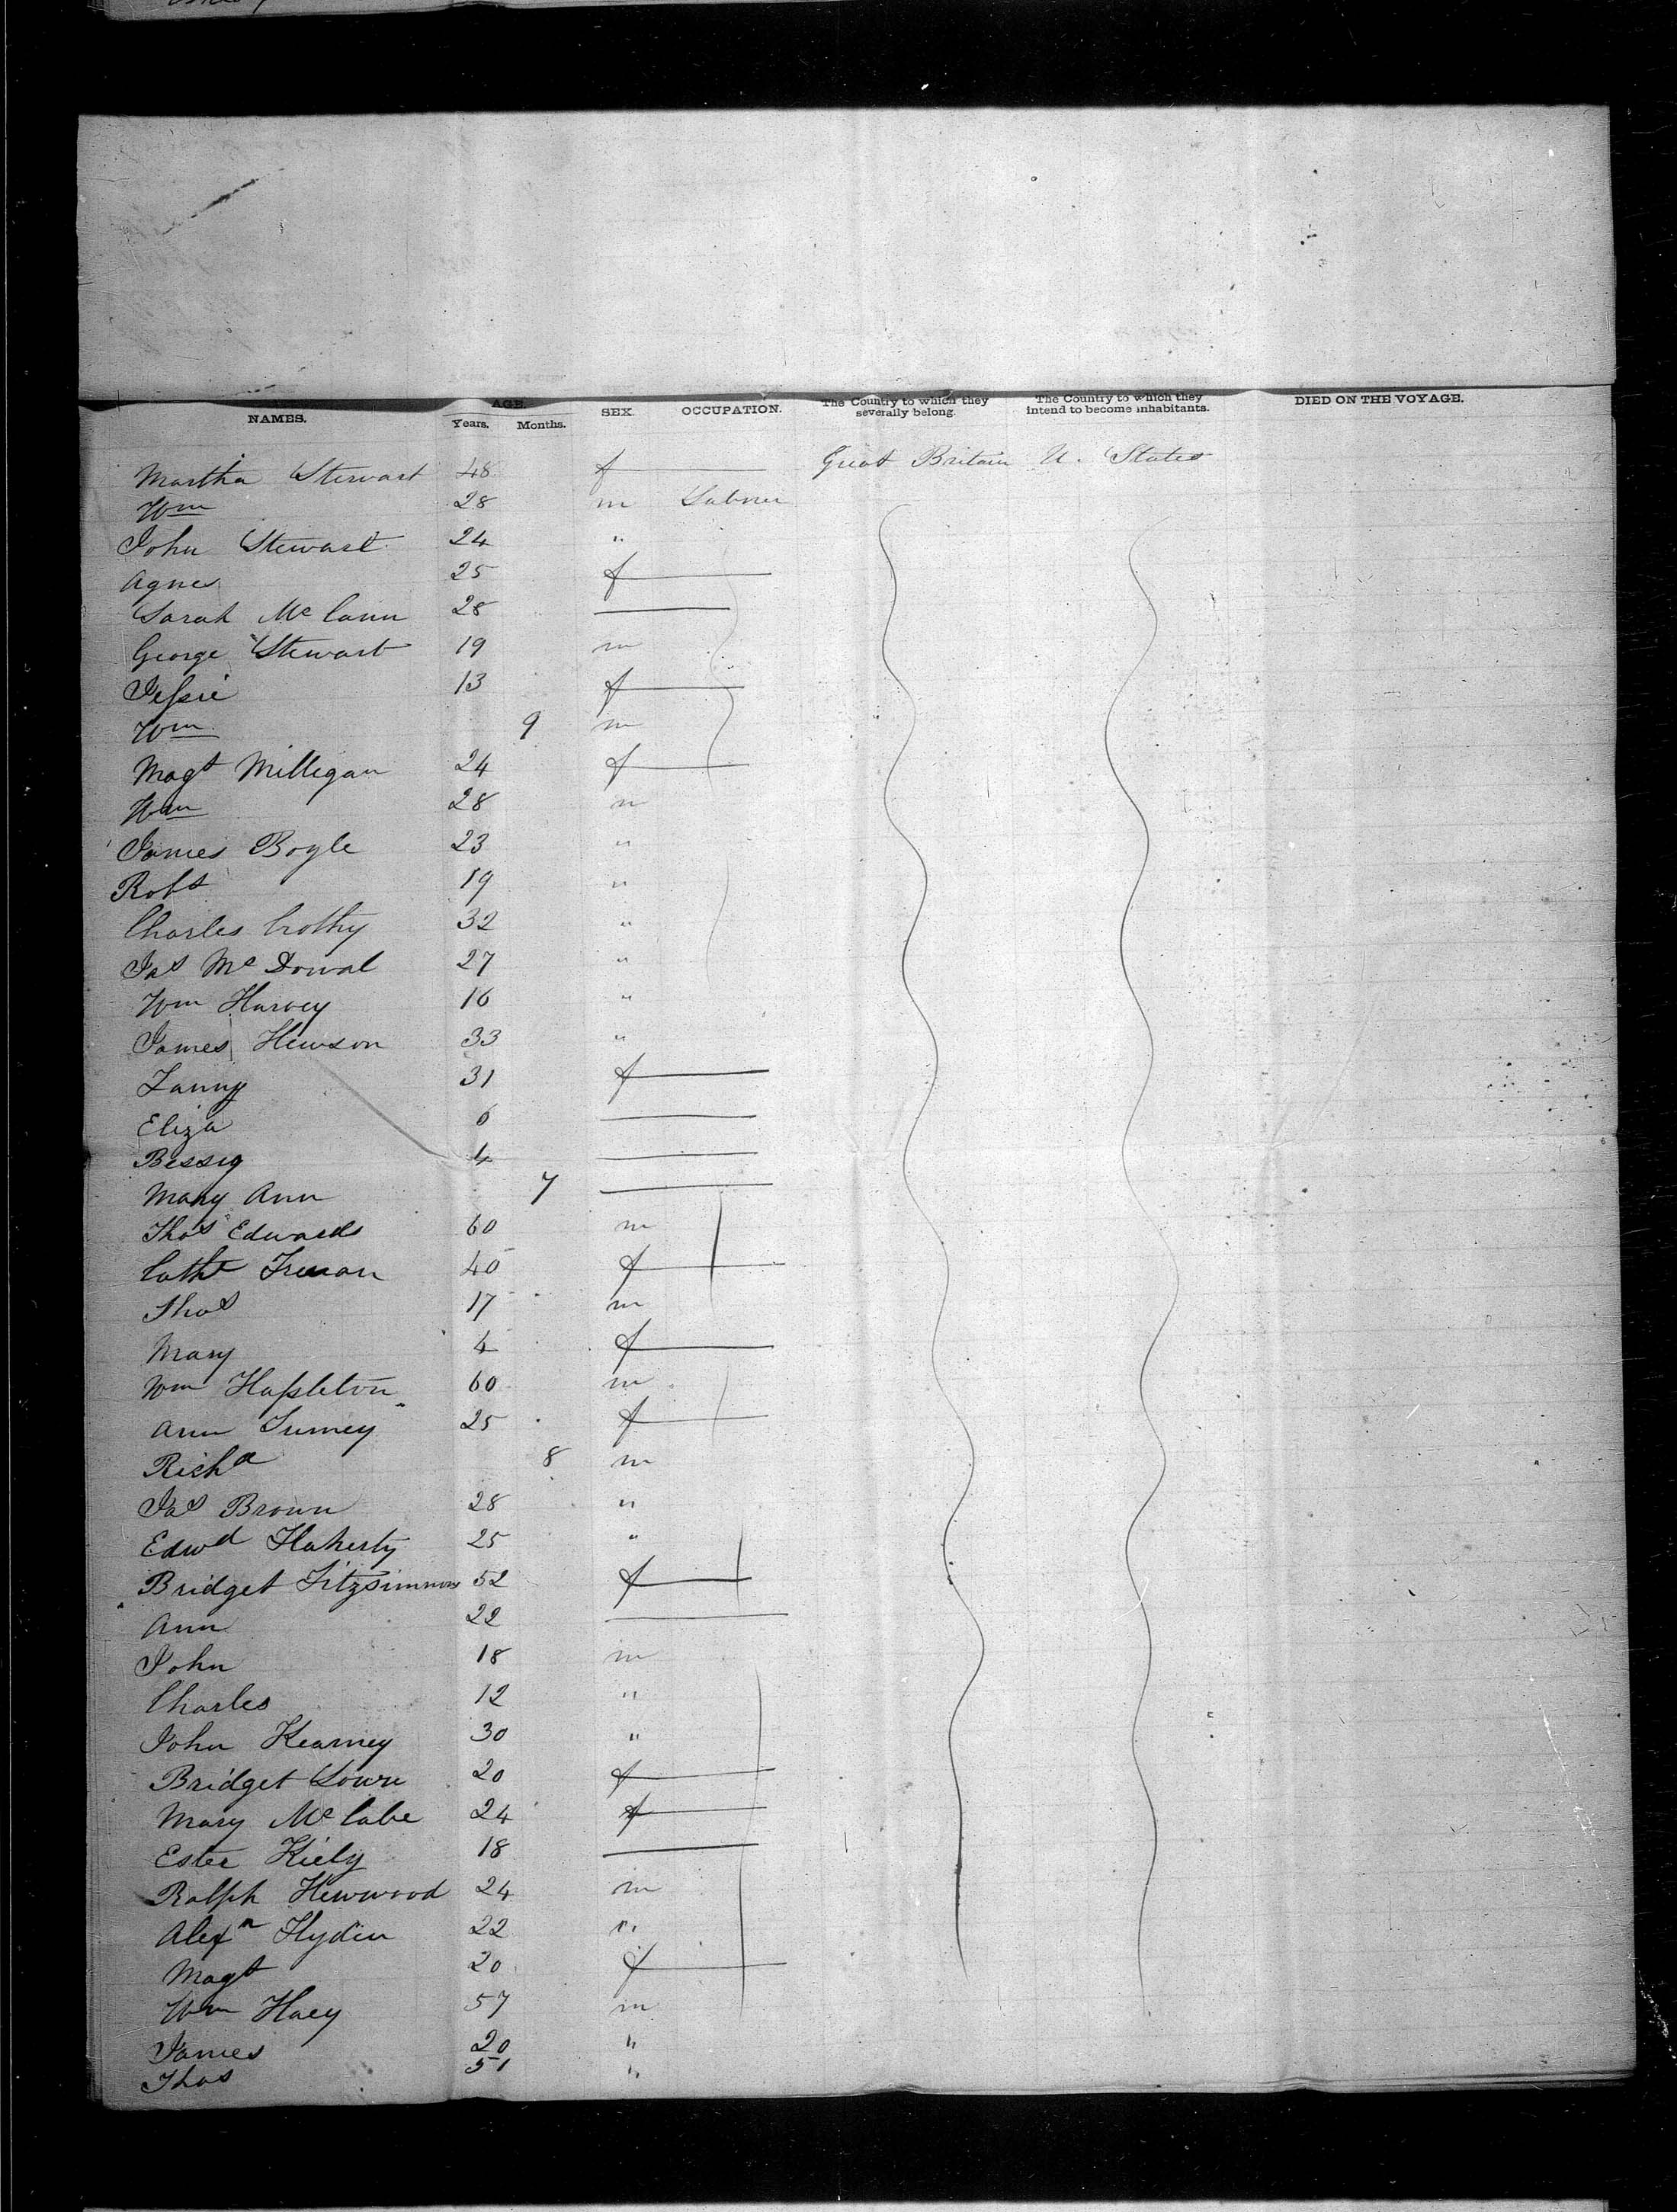 NAMES. AGE. Years. Months. SEX. OCCUPATION. The Country to which they severally belong. The Country to which they intend to become inhabitants. DIED ON THE VOYAGE.
Martha Stewart 48 f Great Britain U. States
Wm 28 m Labourer
John Stewart 24 "
Agnes 25 f
Sarah Mc Cann 28
George Stewart 19 m
Jessie 13 f
Wm 9 m
Magt Milligan 24 f
Wm 28 m
James Boyle 23 "
Robt 19 "
Charles Crothy 32 "
Jas Mc Dowal 27 "
Wm Harvey 16 "
James Hewson 33 "
Fanny 31 f
Eliza 6
Bessey 4
Mary Ann 7
Thos Edwards 60 m
Cathe 40 f
Thos 17 m
Mary 4 f
Wm Hassleton 60 m
Ann Turney 25 f
Richd 8 m
Jas Brown 28 "
Edwd Flaherty 25 "
Bridget Fitzsimmons 52 f
Ann 22
John 18 m
Charles 12 "
John Kearney 30 "
Bridget Lown 20 f
Mary Mc Cabe 24 f
Ester Kiely 18
Ralph Hewwood 24 m
Alexr Hydin 22 "
Magt 20 f
Wm Hoey 57 m
James 20 "
Thos 51 "